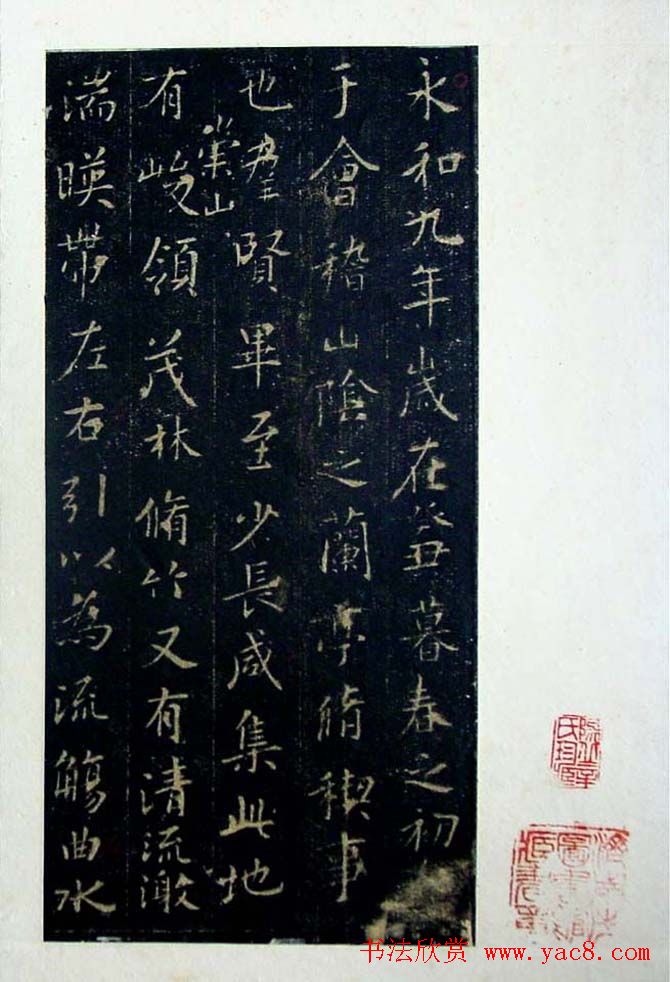 永和九年歲在癸丑暮春之初
于會稽山陰之蘭亭脩稧事
也群賢畢至少長咸集此地
有崇山峻領茂林脩竹又有清流激
湍暎帶左右引以為流觴曲水
书法欣赏 www.yac8.com